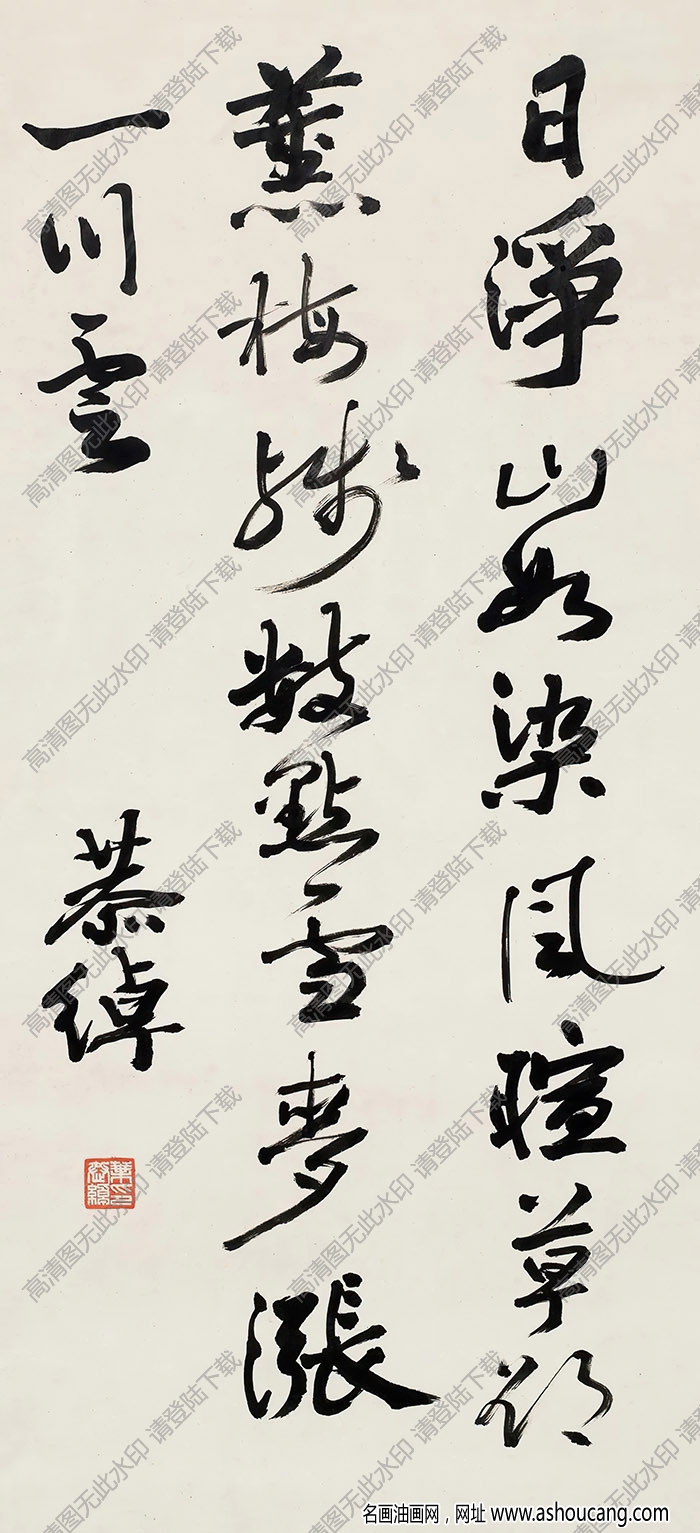 日淨山如染風暄草欲
薰梅殘數點雪麥漲
一川雲
恭綽
葉恭綽印
高清图无此水印 请登陆下载
名画油画网，网址 www.ashoucang.com